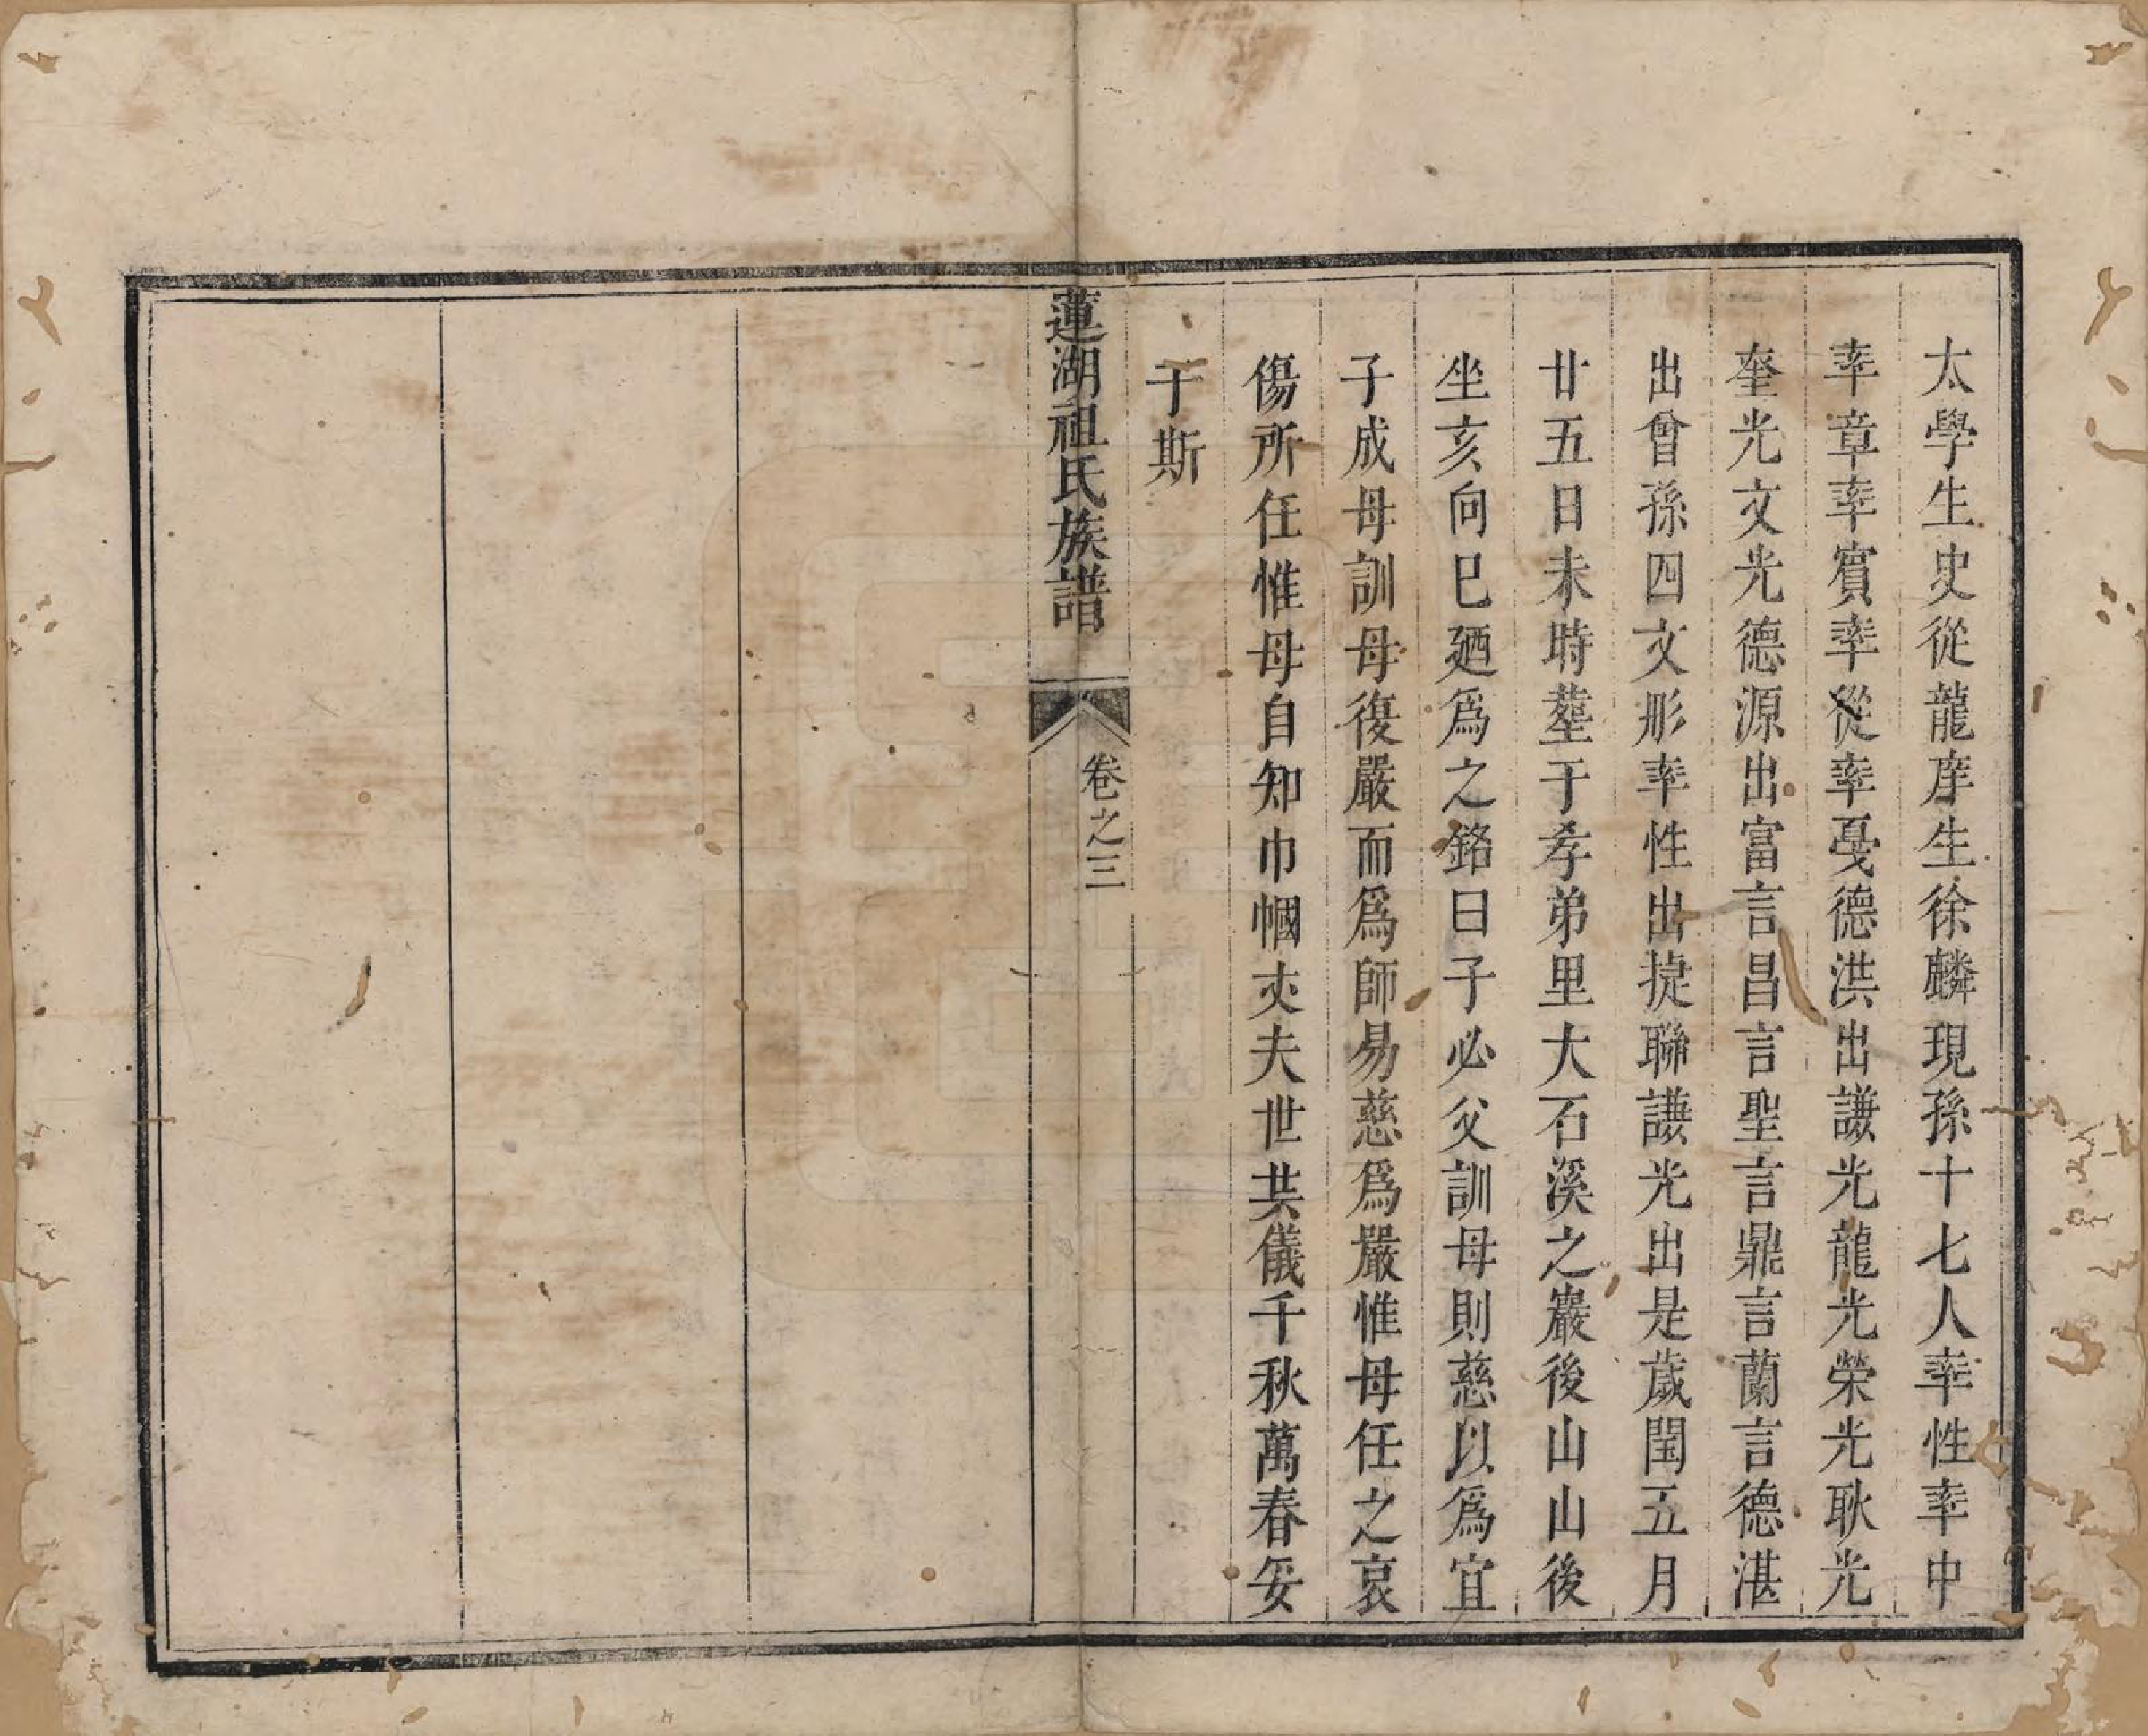 太學生史從龍庠生徐麟現孫十七人率性率中
率章率賓率從率戞德洪出謙光龍光榮光耿光
奎光文光德源出富言昌言聖言鼎言蘭言德湛
出曾孫四文形率性出㨗聯謙光出是歲閏五月
廿五日未時塟于孝弟里大石溪之巖後山山後
坐亥向巳廼爲之銘曰子必父訓母則慈以爲宜
子成母訓母復嚴而爲師易慈爲嚴惟母任之哀
傷所任惟母自知巾幗夾夫世共儀千秋萬春妥
于斯
蓮湖祖氏族譜
卷之三